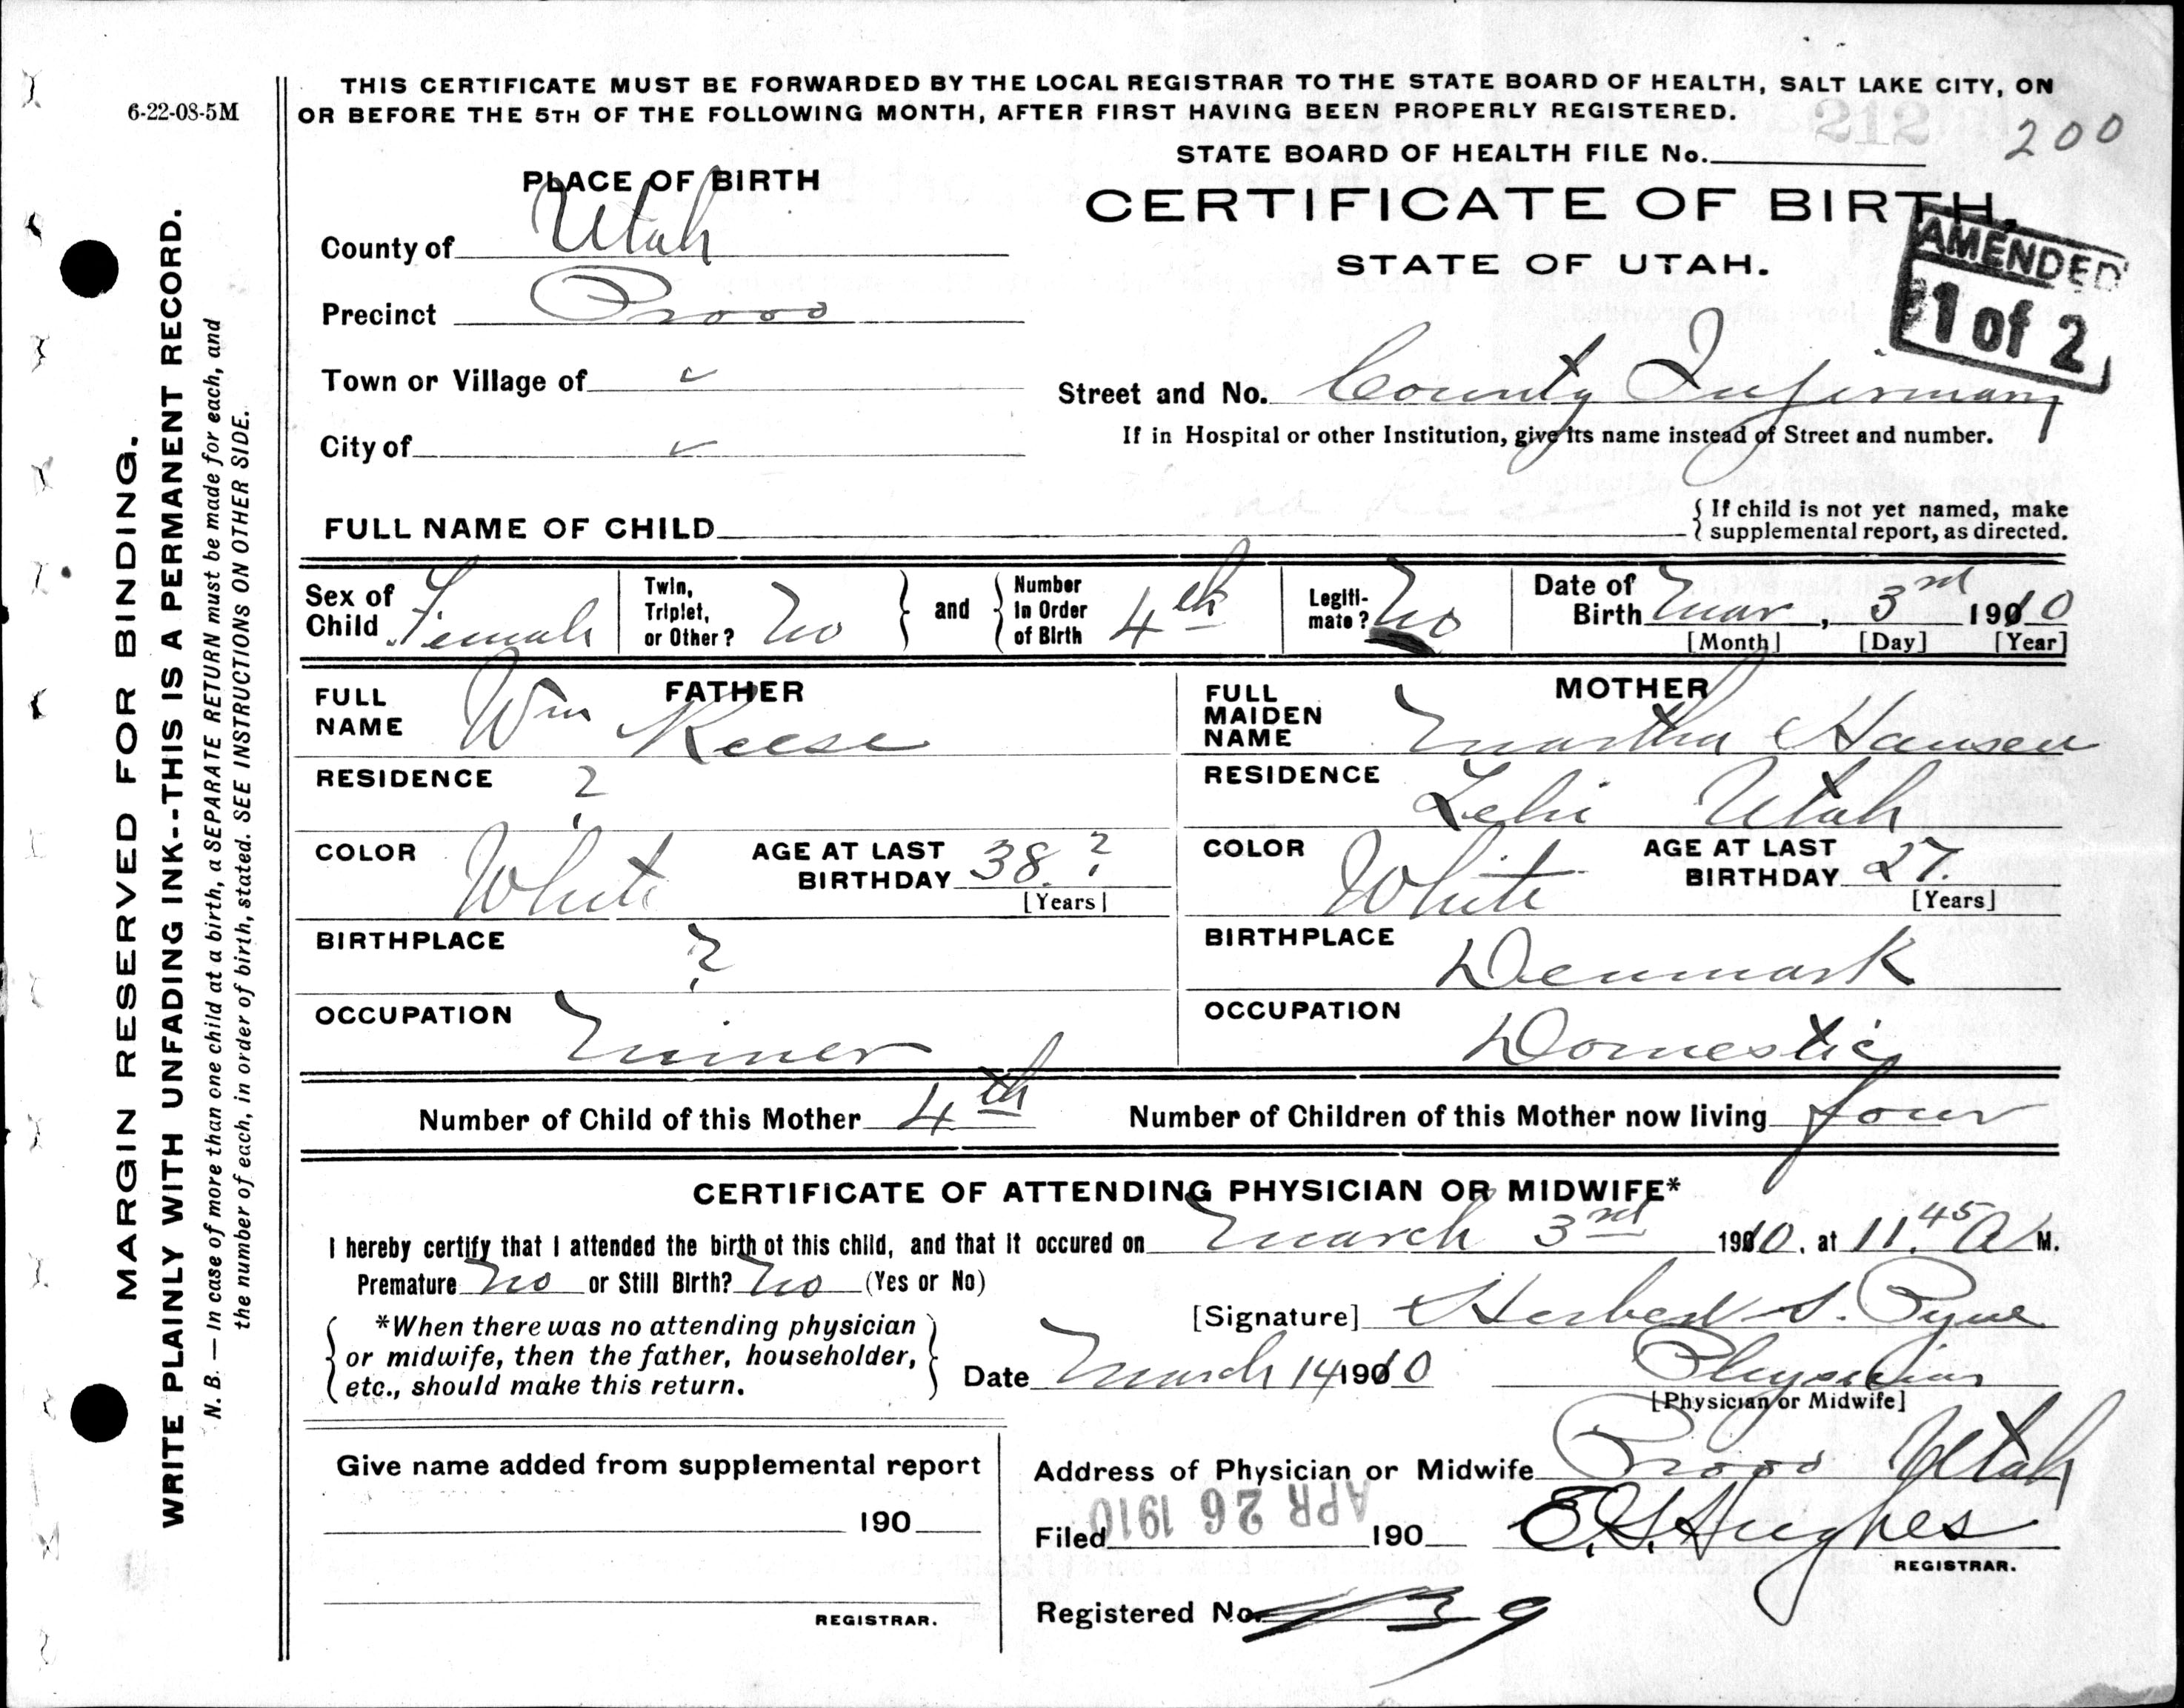 THIS CERTIFICATE MUST BE FORWARDED BY THE LOCAL REGISTRAR TO THE STATE BOARD OF HEALTH, SALT LAKE CITY, ON
OR BEFORE THE 5TH OF THE FOLLOWING MONTH, AFTER FIRST HAVING BEEN PROPERLY REGISTERED.
6-22-08-5M
212
200
STATE BOARD OF HEALTH FILE No.
PLACE OF BIRTH
CERTIFICATE OF BIRTH.
STATE OF UTAH.
AMENDED
1 of 2
County of Utah
Precinct Provo
Town or Village of
City of
Street and No. County Infirmary
If in Hospital or other Institution, give its name instead of Street and number.
FULL NAME OF CHILD
{ If child is not yet named, make
{ supplemental report, as directed.
Sex of Child Female
Twin, Triplet, or Other? No } and { Number in Order of Birth 4th
Legiti-mate? No
Date of Birth Mar, 3rd 1910
[Month] [Day] [Year]
FATHER
FULL NAME Wm Reese
RESIDENCE ?
COLOR White AGE AT LAST BIRTHDAY 38. ?
[Years]
BIRTHPLACE ?
OCCUPATION Miner
MOTHER
FULL MAIDEN NAME Martha Hansen
RESIDENCE Lehi Utah
COLOR White AGE AT LAST BIRTHDAY 27.
[Years]
BIRTHPLACE Denmark
OCCUPATION Domestic
Number of Child of this Mother 4th Number of Children of this Mother now living four
CERTIFICATE OF ATTENDING PHYSICIAN OR MIDWIFE*
I hereby certify that I attended the birth of this child, and that it occured on March 3rd 1910, at 11.45 A M.
Premature No or Still Birth? No (Yes or No)
*When there was no attending physician
or midwife, then the father, householder,
etc., should make this return.
[Signature] Herbert S. Pyne
Date March 14 1910 Physician
[Physician or Midwife]
Give name added from supplemental report
190
REGISTRAR.
Address of Physician or Midwife Provo Utah
APR 26 1910
Filed 190 E. G. Hughes
REGISTRAR.
Registered No. 39
MARGIN RESERVED FOR BINDING.
WRITE PLAINLY WITH UNFADING INK--THIS IS A PERMANENT RECORD.
N. B. — In case of more than one child at a birth, a SEPARATE RETURN must be made for each, and
the number of each, in order of birth, stated. SEE INSTRUCTIONS ON OTHER SIDE.